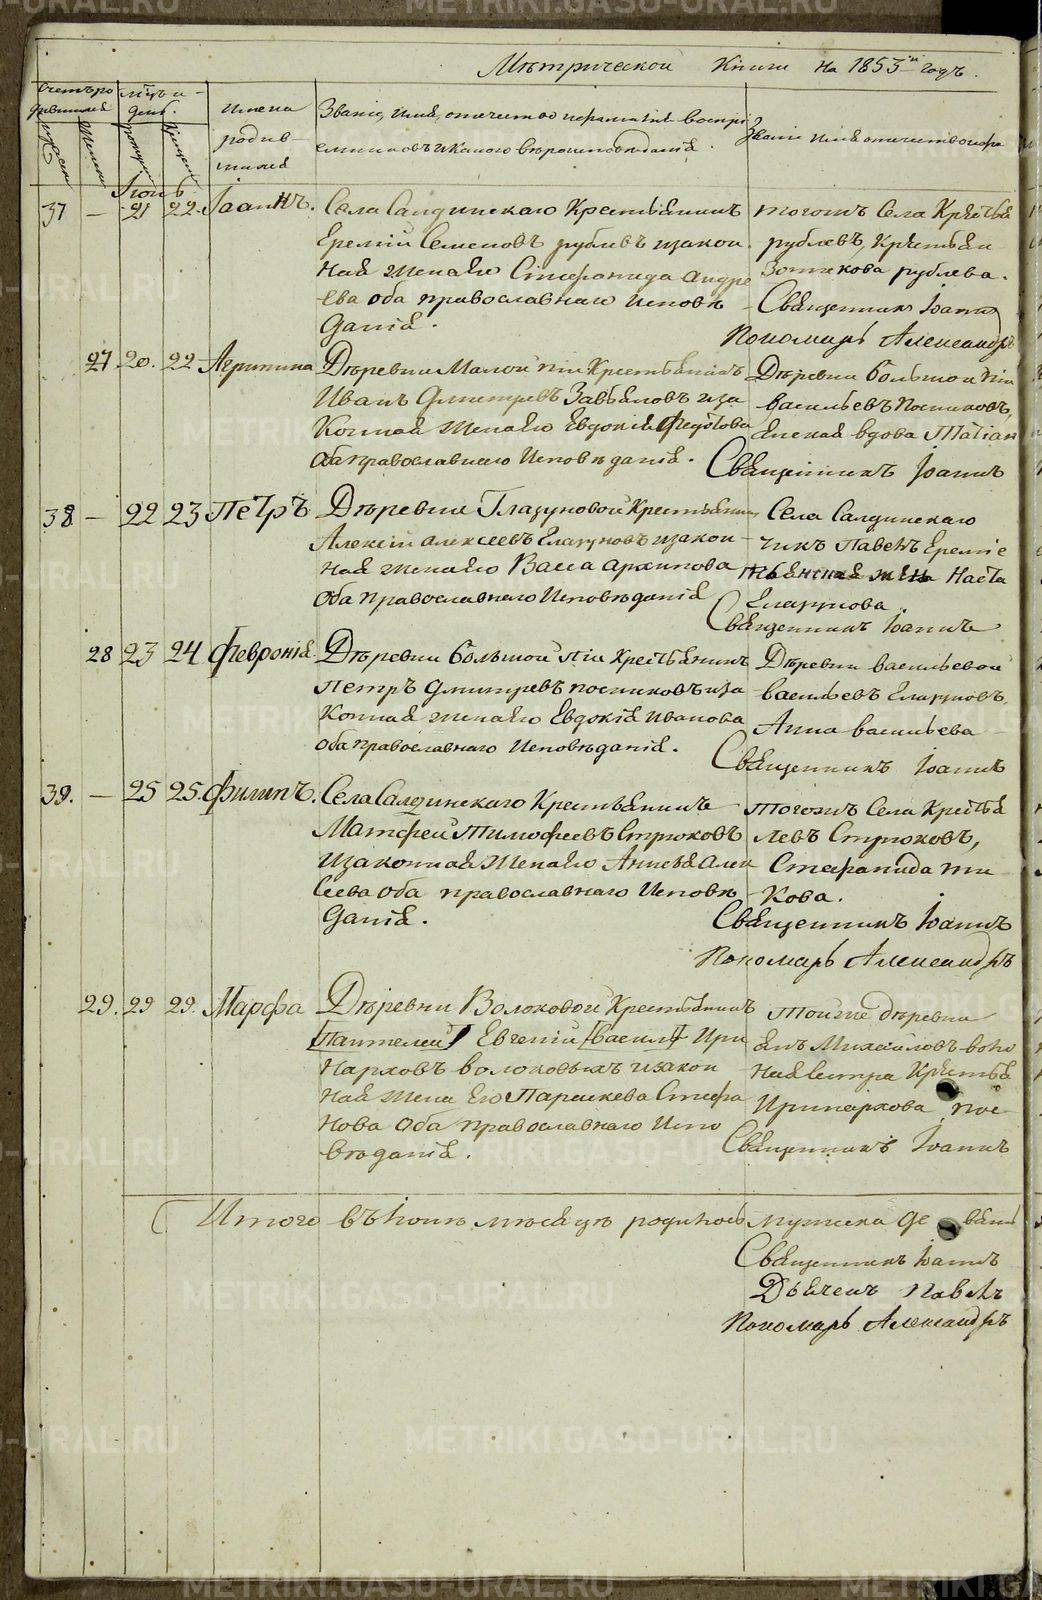 Мѣтрической Книги на 1853й годъ.
Счетъ ро
дившихся
мужеска
женска
Мѣсяцъ и
день.
рожденія
крещенія
Имена
родив
шихся
Званіе, имя, отчество
и какого вѣроисповѣданія.
Званіе имя отчество
Іюнь
37 — 21 22. Іоаннъ. Села Салдинскаго Крестьянинъ
Еремій Семеновъ рублевъ изакон
ная жена его Стефанида Андре
ева оба православнаго исповѣ
данія.
тогожъ Села Крестья
рублевъ, Крестьян
Зотикова рублева.
Священникъ Іоаннъ
Пономарь Александръ
27 20. 22 Агрипина Деревни Малой Піи Крестьянинъ
Иванъ Дмитревъ Завьяловъ иза
Конная жена его Евдокія Федотова
Оба православнаго Исповѣданія.
Деревни большой Піи
васильевъ Посниковъ,
янская вдова Татіан
Священникъ Іоаннъ
38 — 22 23 Петръ Деревни Глазуновой Крестьянинъ
Алексій алексеевъ Глазуновъ изакон
ная жена его Васса архипова
Оба Православнаго Исповѣданія
Села Салдинскаго
чикъ Павелъ Еремие
жена Наста
Глазунова.
Священникъ Іоаннъ
28 23 24 Февронія. Деревни большой Піи Крестьянинъ
Петръ Дмитревъ посниковъ иза
Конная жена его Евдокія Иванова
оба православнаго Исповѣданія.
Деревни васильевой
васильевъ Глазуновъ,
Анна васильева
Священникъ Іоаннъ
39. — 25 25. Филипъ. Села Салдинскаго Крестьянинъ
Матфей Тимофеевъ Стрюковъ
Изаконная жена его Анисья Алек
сеева оба православнаго Исповѣ
данія.
тогожъ Села Крестья
левъ Стрюковъ,
Стефанида ти
Кова.
Священникъ Іоаннъ
Пономарь Александръ
29. 29 29. Марфа Деревни Волоковой Крестьянинъ
Пантелей Евгеній Ири
Нарховъ волоковыхъ изакон
ная жена Его Параскева Стефа
Нова Оба православнаго Испо
вѣданія.
Тойже деревни
янъ Михайловъ воло
ная сестра Крестья
Иринархова
Священникъ Іоаннъ
Итого въ Іюнѣ мѣсяцѣ родилось мужеска де вять
Священникъ Іоаннъ
Дьячекъ Павелъ
Пономарь Александръ
METRIKI.GASO-URAL.RU